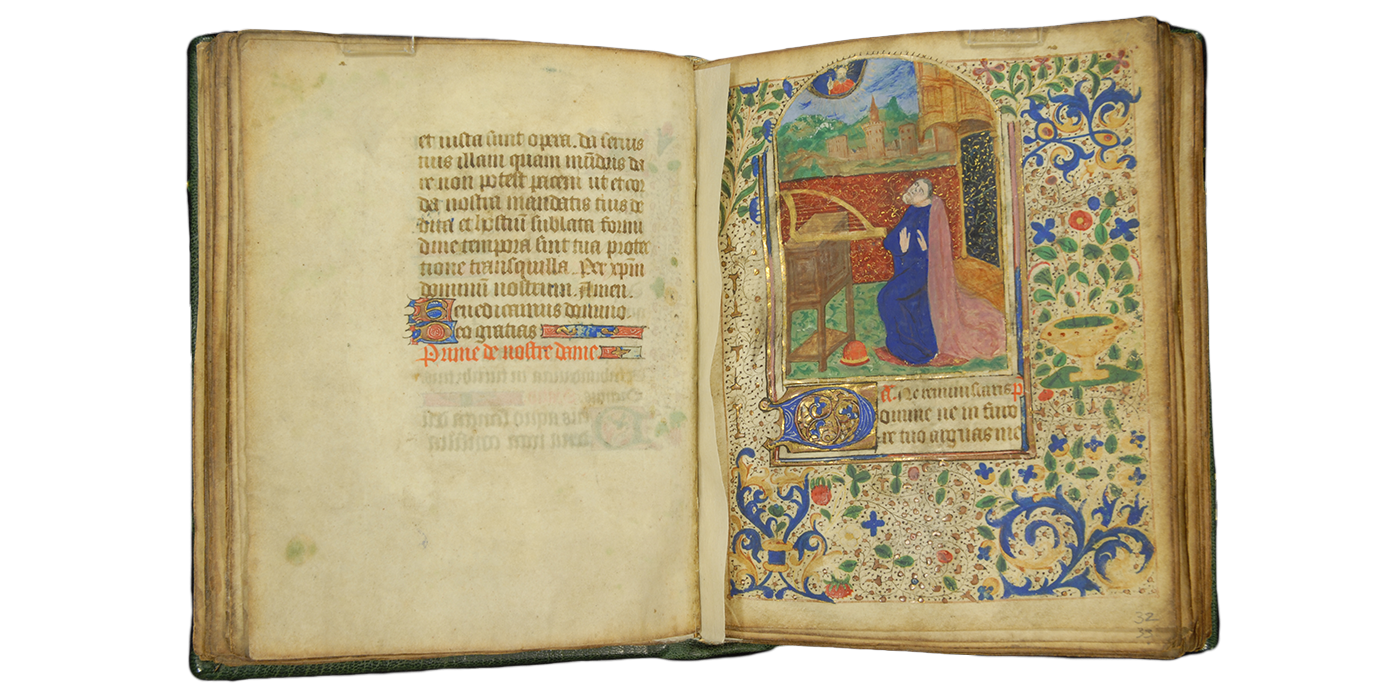 et iusta sunt opera. da seruis
tuis illam quam mūdus da
re non potest pacem ut et cor
da nostra mandatis tuis de
dita et hostiū sublata formi
dine tempora sint tua prote
ctione tranquilla. Per xpm
dominū nostrum. Amen.
Benedicamus domino.
Deo gratias
Prime de nostre dame
A. Ne reminiscaris P
Domine ne in furo
re tuo arguas me
32